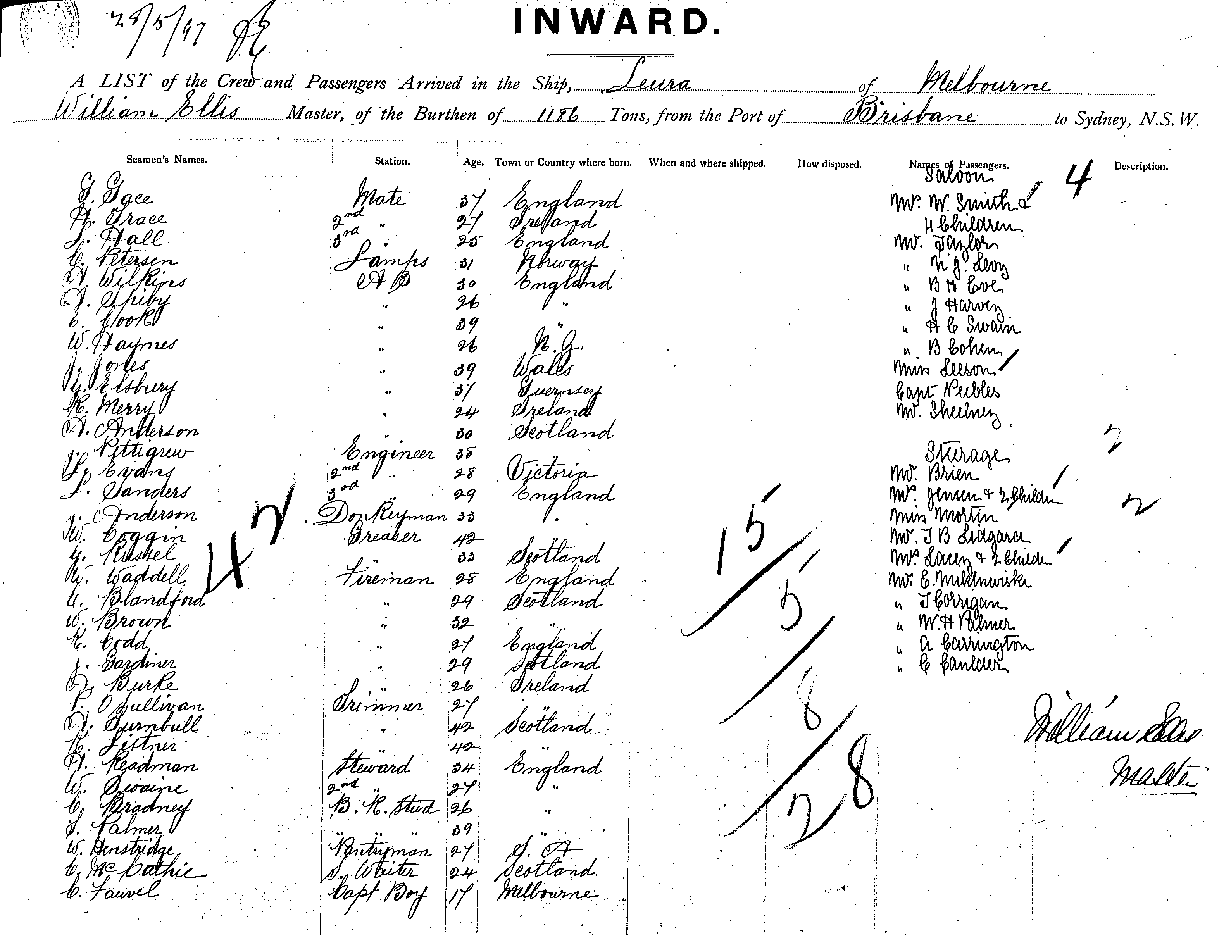 28/5/97
INWARD.
A LIST of the Crew and Passengers Arrived in the Ship, Leura of Melbourne
William Ellis Master, of the Burthen of 1186 Tons, from the Port of Brisbane to Sydney, N.S.W.
Seamen's Names. Station. Age. Town or Country where born. When and where shipped. How disposed. Names of Passengers. Description.
Saloon 4
Mate 37 England Mrs W. Smith &
Grace 2nd " 27 Ireland 4 Children
Hall 3rd " 25 England Mr. Taylor
C. Petersen Lamps 31 Norway " Levy
A. Wilkins A B 30 England " B H
" 26 " " J Harvey
Cook " 39 " " H C Swain
W. Haymes " 26 N.Z. " B Cohen
J. Jones " 39 Wales Miss Leeson
Elsbury " 37 Guernsey Capt Peebles
Merry " 24 Ireland Mr.
A. Anderson " 30 Scotland
J. Pettigrew Engineer 35 Sterage 2
Evans 2nd " 28 Victoria Mr. Brien
Sanders 3rd " 29 England Mrs Jensen & 2 Childn
J. Anderson Donkeyman 33 " Miss Martin 2
W. Coggin Greaser 42 Mr. J B Lidgard
Russel 33 Scotland Mrs Lacey & 2 Childn
W. Waddell Fireman 28 England Mr C.
Blandford " 29 Scotland " J Corrigan
W. Brown " 32 " " W. H Palmer
Codd " 27 England " A Carrington
J. Gardiner " 29 Scotland " C Caulder
Burke " 26 Ireland
O'Sullivan Trimmer 27
Turnbull " 42 Scotland
42
Readman Steward 34 England
W. Swaine 2nd " 27 "
C. Bradney B. R. Stud 26 "
Palmer " " 39 "
W. Henstridge Pantryman 27 S. A
C. McCathie S. Waiter 24 Scotland
C. Fauvel Capt Boy 17 Melbourne
42
15
5
8
28
William Ellis
Master